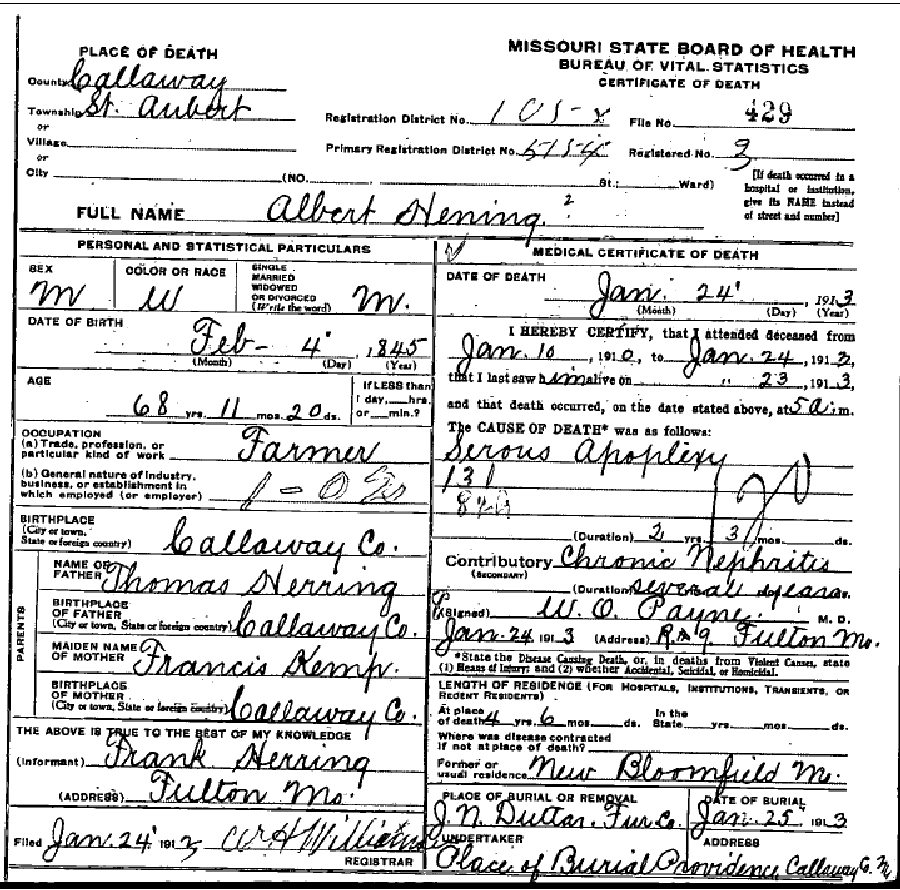 MISSOURI STATE BOARD OF HEALTH
BUREAU OF VITAL STATISTICS
CERTIFICATE OF DEATH
PLACE OF DEATH
County Callaway
Township St. Aubert
or
Village
or
City (NO. St.; Ward)
Registration District No. File No. 429
Primary Registration District No. 5154 Registered No. 3
[If death occurred in a hospital or institution, give its NAME instead of street and number]
FULL NAME Albert Hening ?
PERSONAL AND STATISTICAL PARTICULARS
SEX M
COLOR OR RACE W
SINGLE MARRIED WIDOWED OR DIVORCED (Write the word) M.
DATE OF BIRTH Feb - 4 , 1845
(Month) (Day) (Year)
AGE 68 yrs. 11 mos. 20 ds.
If LESS than 1 day, hrs. or min.?
OCCUPATION
(a) Trade, profession, or particular kind of work Farmer
(b) General nature of industry, business, or establishment in which employed (or employer)
BIRTHPLACE
(City or town, State or foreign country) Callaway Co.
PARENTS
NAME OF FATHER Thomas Herring
BIRTHPLACE OF FATHER (City or town, State or foreign country) Callaway Co.
MAIDEN NAME OF MOTHER Francis Kemp.
BIRTHPLACE OF MOTHER (City or town, State or foreign country) Callaway Co.
THE ABOVE IS TRUE TO THE BEST OF MY KNOWLEDGE
(Informant) Frank Herring
(ADDRESS) Fulton Mo.
Filed Jan. 24 1913 W H Williams
REGISTRAR
MEDICAL CERTIFICATE OF DEATH
DATE OF DEATH Jan. 24 , 1913
(Month) (Day) (Year)
I HEREBY CERTIFY, that I attended deceased from
Jan. 10 , 1910, to Jan. 24 , 1913,
that I last saw him alive on " 23 , 1913,
and that death occurred, on the date stated above, at 5 a. m.
The CAUSE OF DEATH* was as follows:
Serous Apoplexy
131
(Duration) 2 yrs. 3 mos. ds.
Contributory Chronic Nephritis
(SECONDARY)
(Duration) several years.
(Signed) W. O. Payne. M. D.
Jan. 24 1913 (Address) R. # 9. Fulton Mo.
*State the Disease Causing Death, or, in deaths from Violent Causes, state
(1) Means of Injury; and (2) whether Accidental, Suicidal, or Homicidal.
LENGTH OF RESIDENCE (FOR HOSPITALS, INSTITUTIONS, TRANSIENTS, OR RECENT RESIDENTS)
At place of death 4 yrs. 6 mos. ds. In the State yrs. mos. ds.
Where was disease contracted
if not at place of death?
Former or usual residence New Bloomfield Mo.
PLACE OF BURIAL OR REMOVAL DATE OF BURIAL
J. N. Dutton. Fur. Co. Jan. 25 1913
UNDERTAKER ADDRESS
Place of Burial Providence Callaway Co. Mo